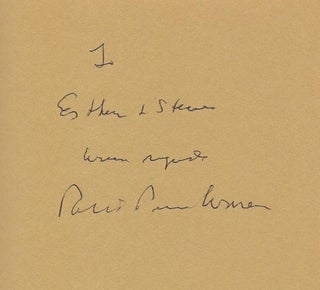 To
Esther & Steven
warm regards
Robert Penn Warren